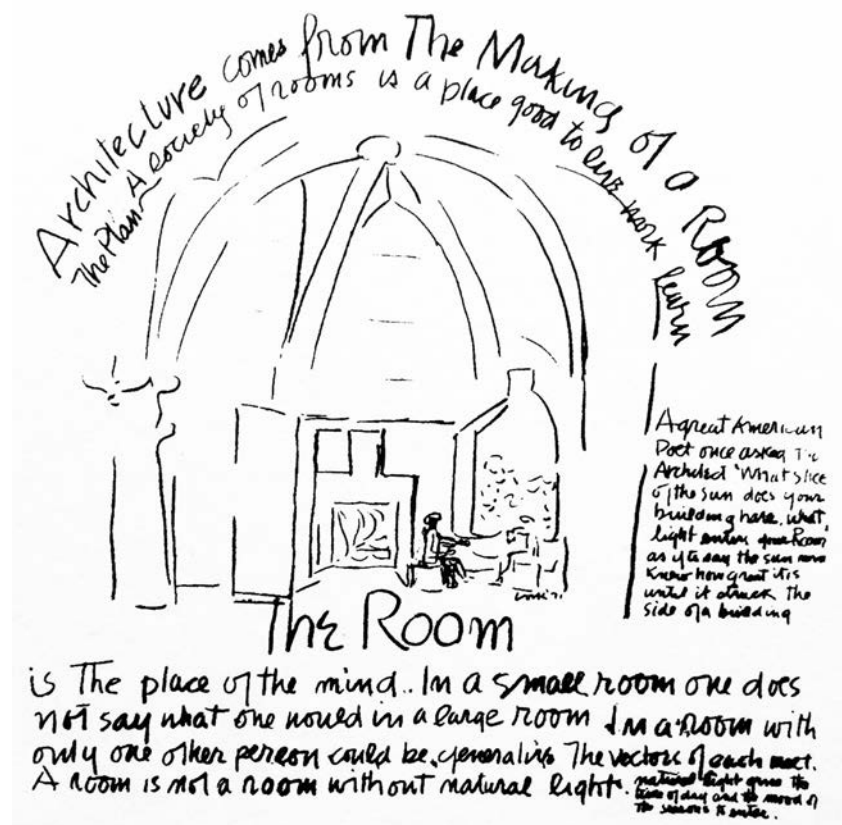 Architecture comes from The Making of a Room
The Plan A society of rooms is a place good to live work learn
A great American
Poet once asked The
Architect 'What slice
of the sun does your
building have. what
light enters your Room'
as if to say the sun never
knew how great it is
until it struck the
side of a building
The Room
is The place of the mind.. In a small room one does
not say what one would in a large room In a room with
only one other person could be generative The vectors of each meet.
A room is not a room without natural light.
natural light gives the
time of day and the mood of
the seasons to enter.